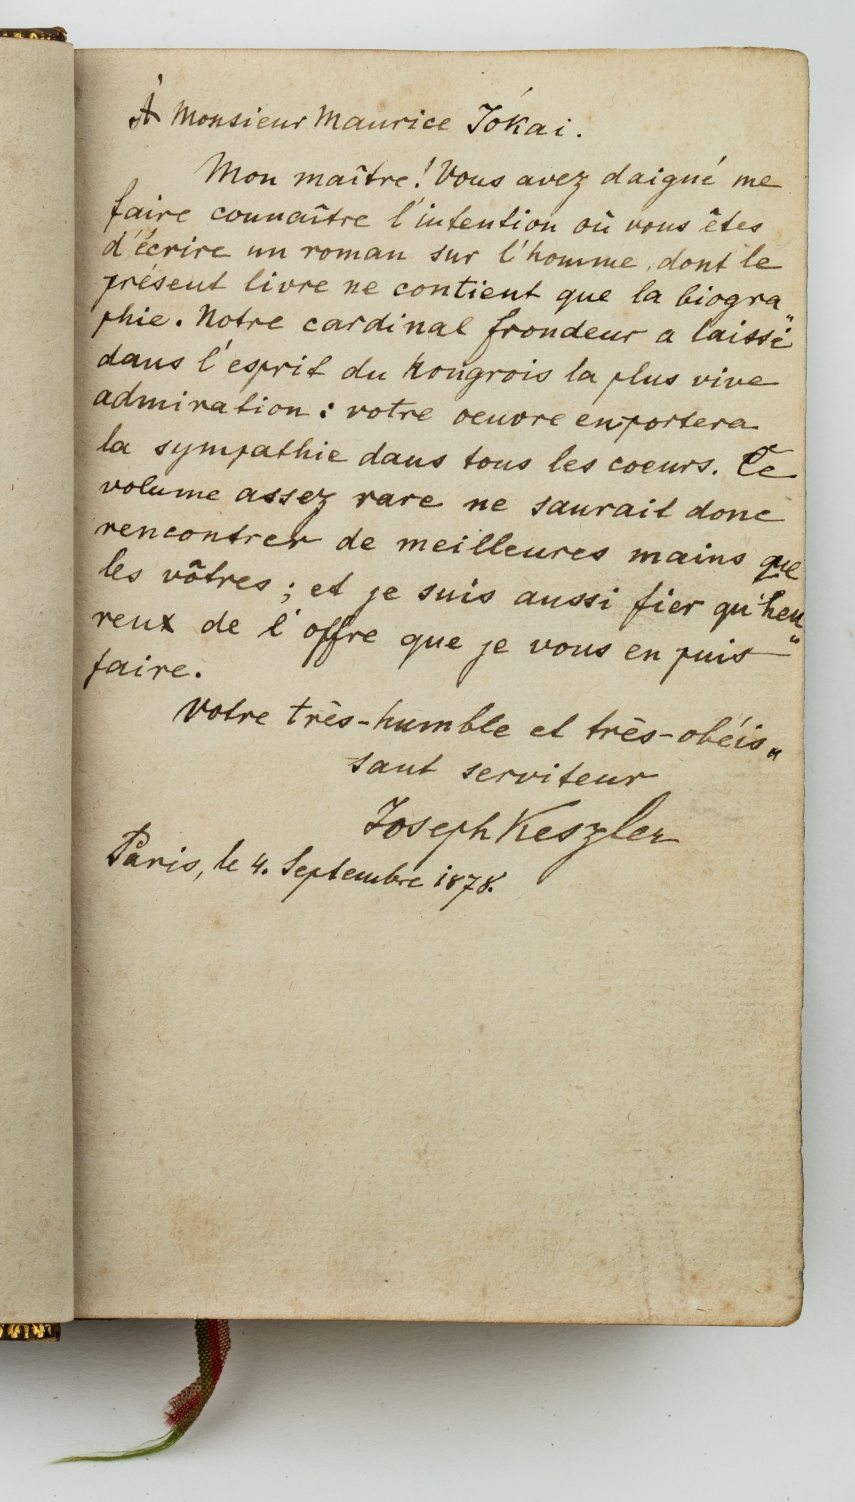 À Monsieur Maurice Jókai.
Mon maître! Vous avez daigné me
faire connaître l'intention où vous êtes
d'écrire un roman sur l'homme, dont le
présent livre ne contient que la biogra„
phie. Notre cardinal frondeur a laissé
dans l'esprit du hongrois la plus vive
admiration: votre oeuvre emportera
la sympathie dans tous les coeurs. Ce
volume assez rare ne saurait donc
rencontrer de meilleures mains que
les vôtres; et je suis aussi fier qu'heu„
reux de l'offre que je vous en puis
faire.
Votre très-humble et très-obéis„
sant serviteur
Joseph Keszler
Paris, le 4. Septembre 1878.